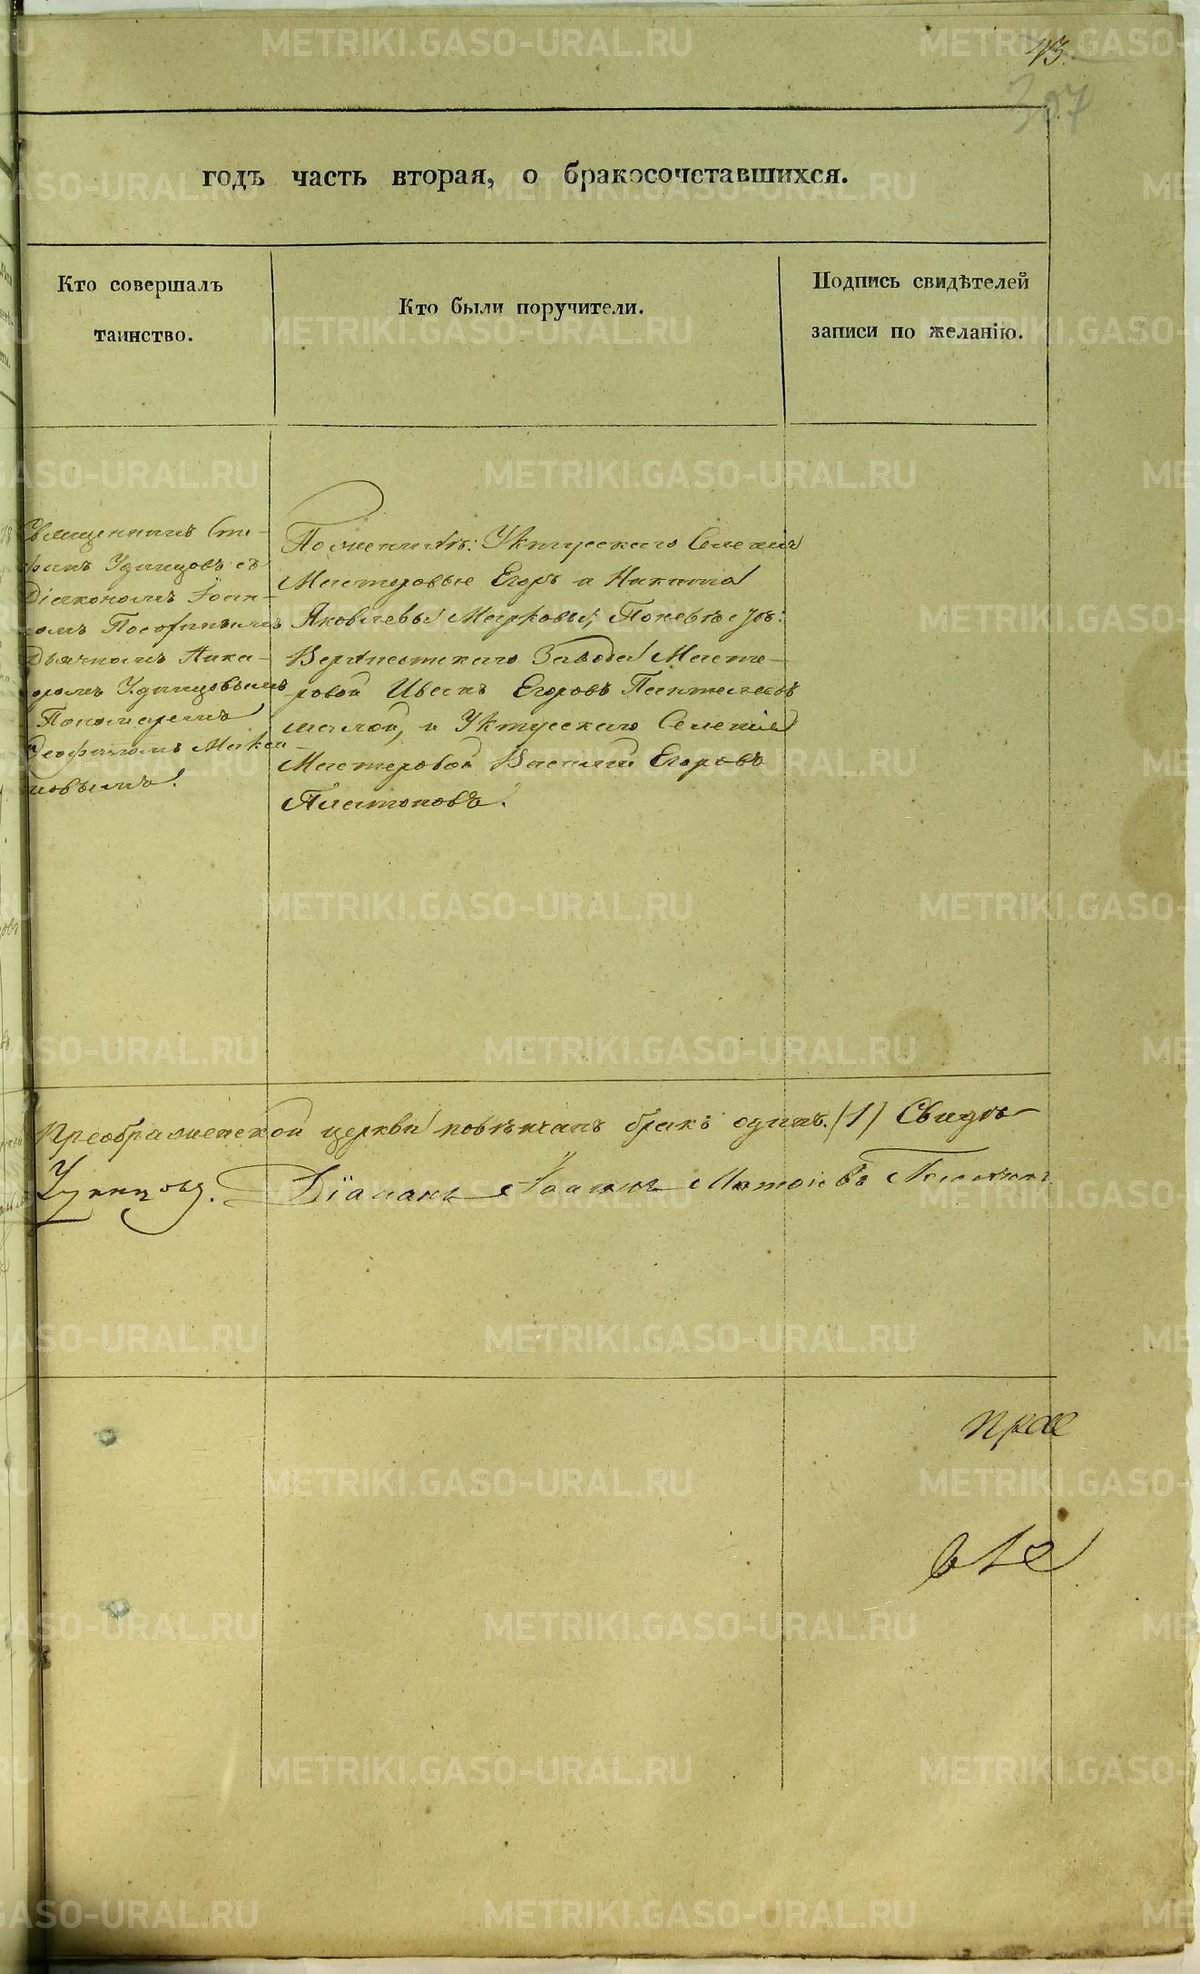 43.
307
годъ часть вторая, о бракосочетавшихся.
Кто совершалъ
таинство.
Кто были поручители.
Подпись свидѣтелей
записи по желанію.
Священникъ Сте-
фанъ Удинцовъ съ
Діакономъ Іоан-
номъ
Дьячкомъ Ника-
норомъ Удинцовымъ
Пономаремъ
Феофаномъ
По женихѣ: Уктусскаго Селенія
Мастеровые Егоръ и Никита
Яковлевы Марковы; По невѣстѣ:
Верхисетскаго Завода Масте-
ровой Иванъ Егоровъ
малой, и Уктусскаго Селенія
Мастеровой Василій Егоровъ
Платоновъ.
Преображенской церкви повѣнчанъ бракъ одинъ. (1) Свидѣ-
Удинцовъ. Діаконъ Іоаннъ
METRIKI.GASO-URAL.RU